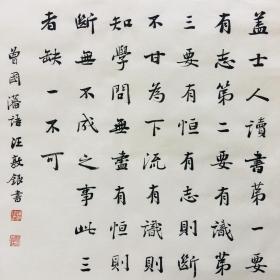 盖士人讀書第一要
有志第二要有識第
三要有恒有志則斷
不甘為下流有識則
知學問無盡有恒則
斷無不成之事此三
者缺一不可
曾國藩語汪敬錕書